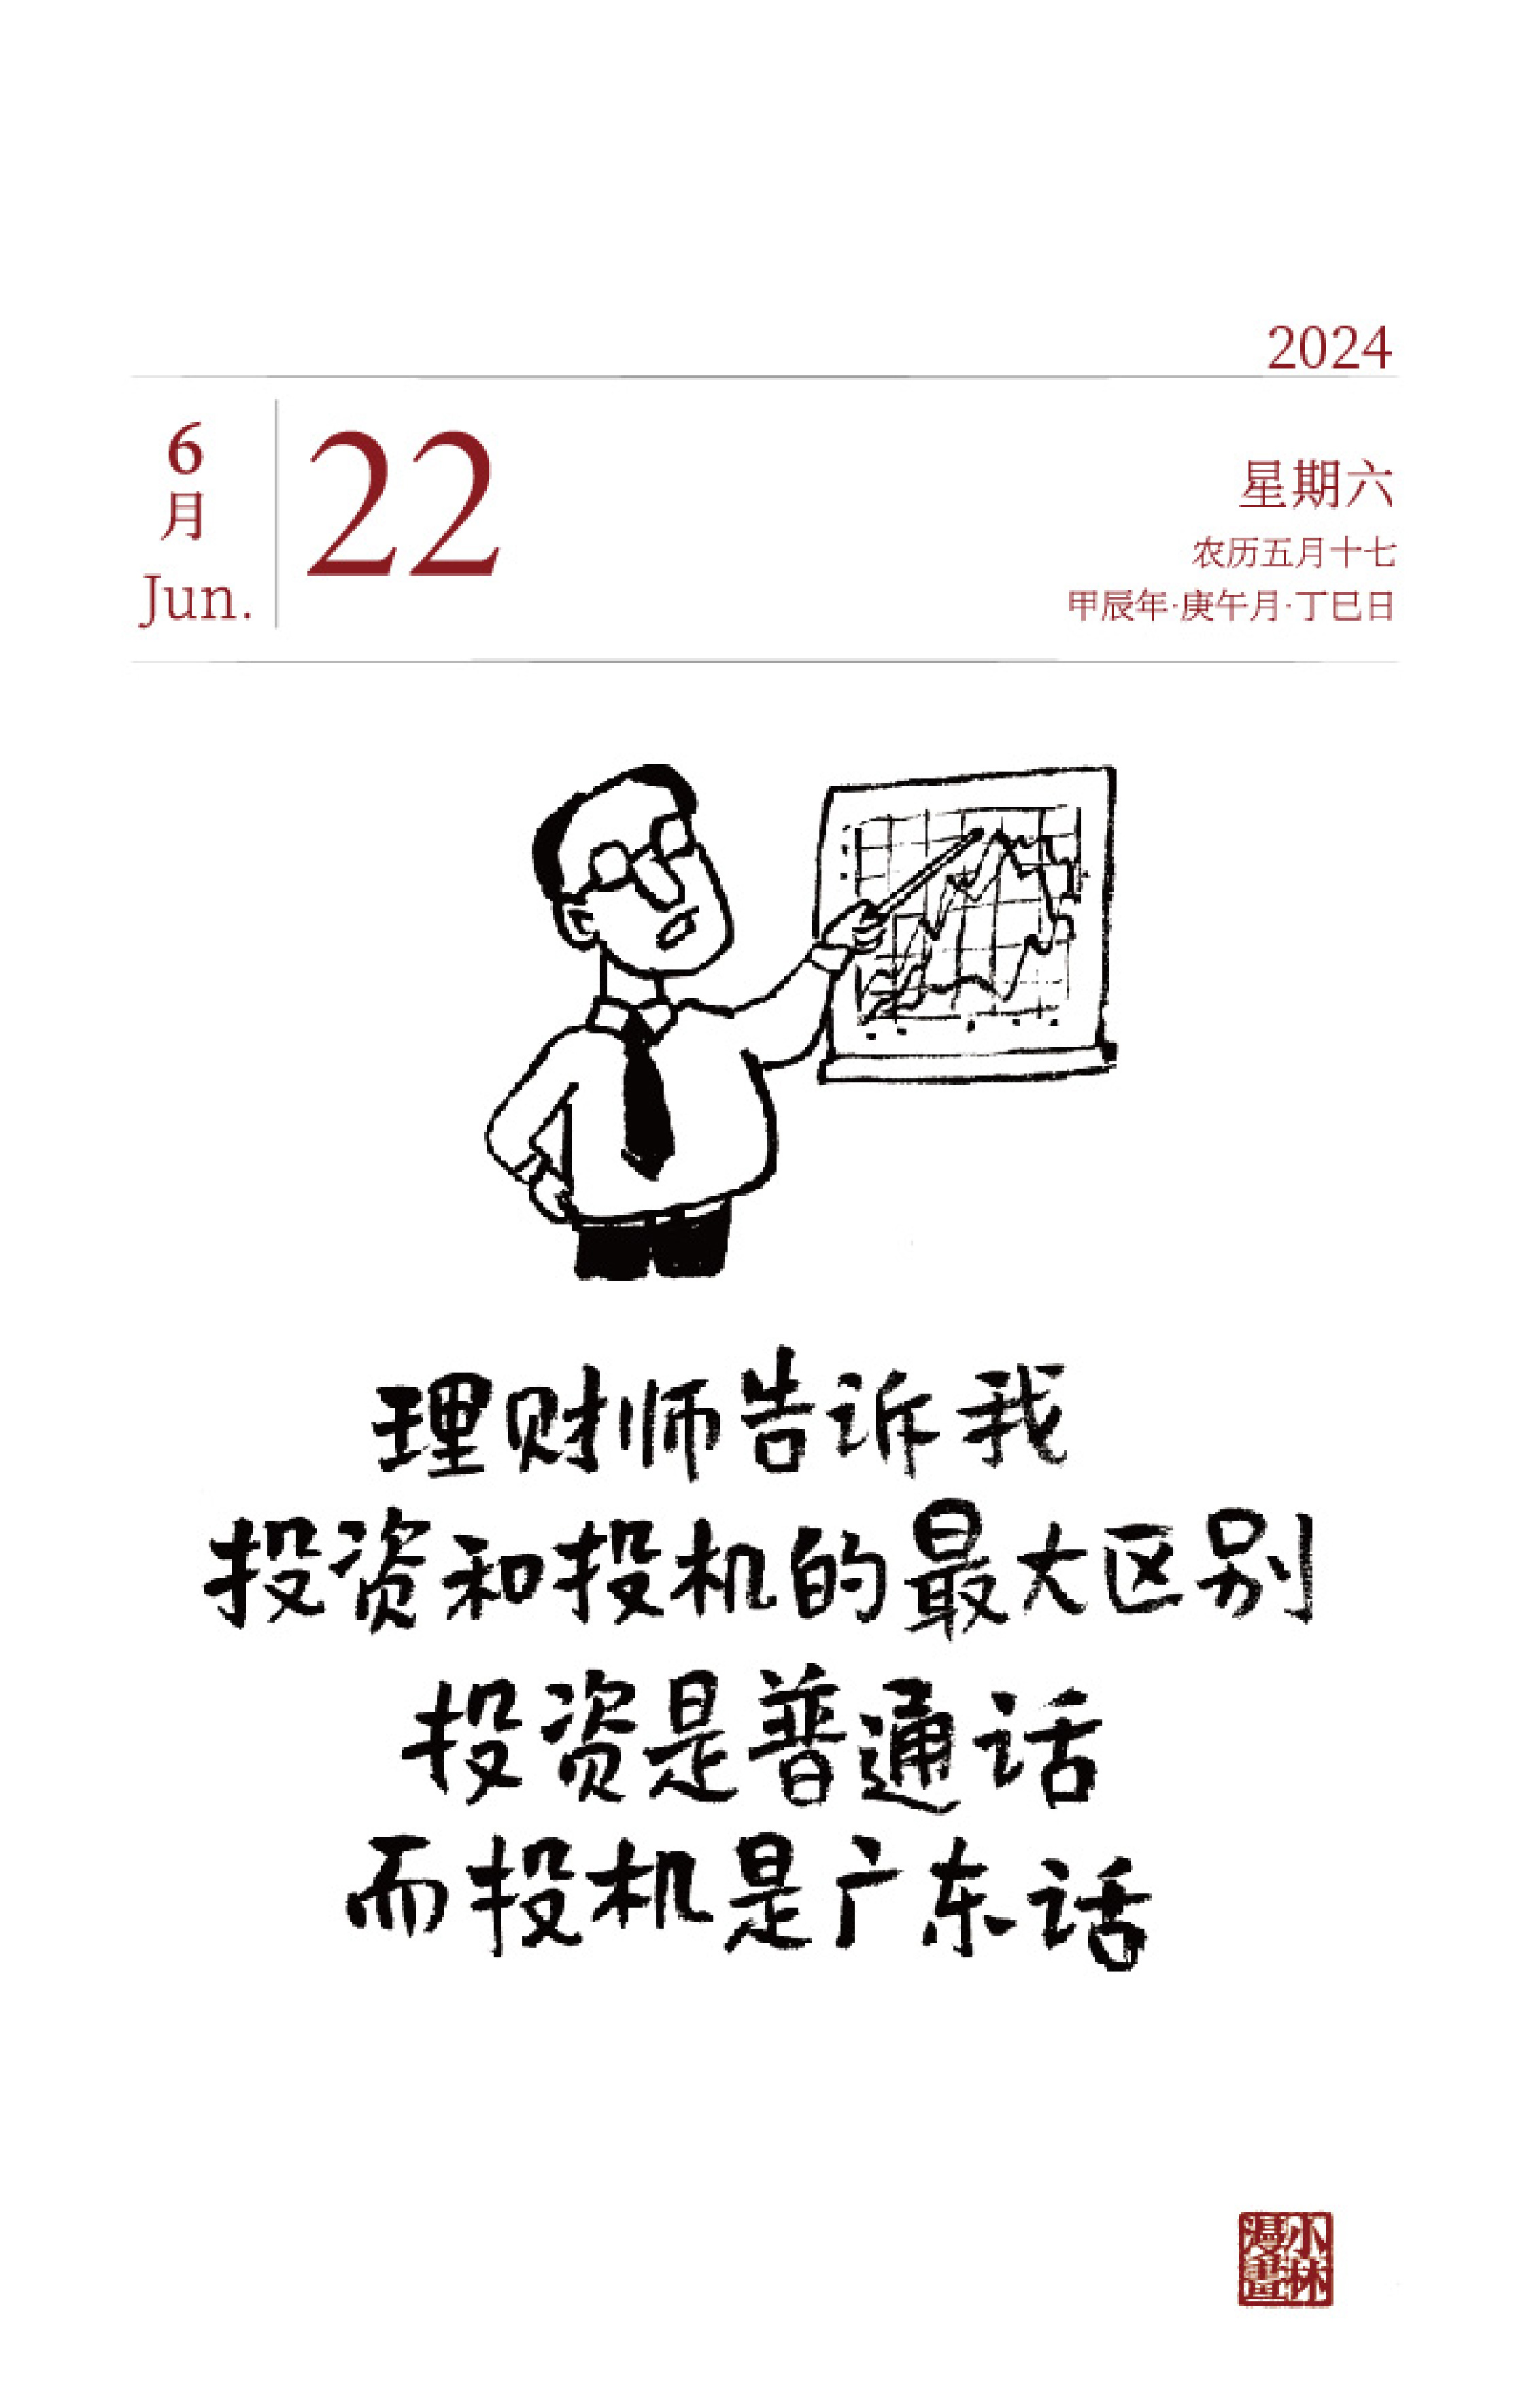 2024
6
月
Jun.
22
星期六
农历五月十七
甲辰年·庚午月·丁巳日
理财师告诉我
投资和投机的最大区别
投资是普通话
而投机是广东话
小林
漫畫